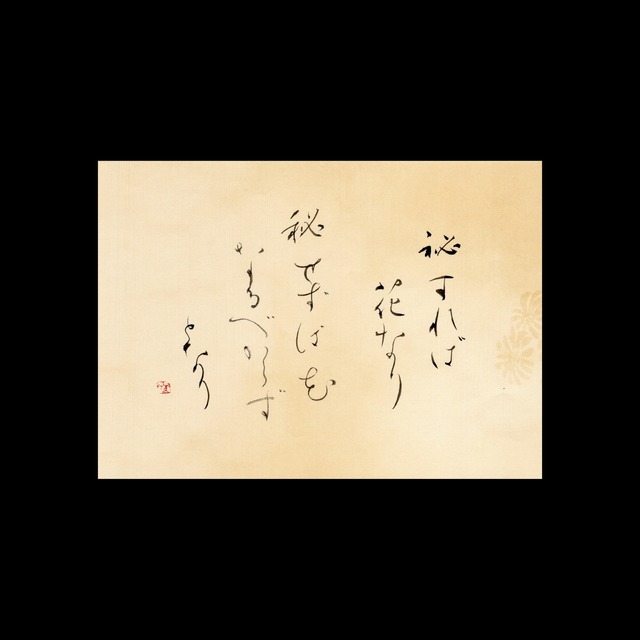 秘すれば
花なり
秘せずは花
なるべからず
となり